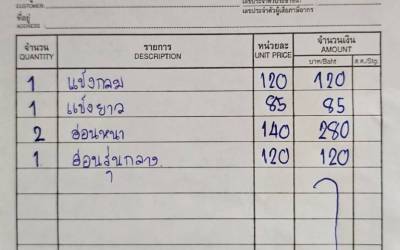 CUSTOMER
เลขประจำตัวผู้เสียภาษีอากร
ที่อยู่
ADDRESS
จำนวน รายการ หน่วยละ จำนวนเงิน
QUANTITY DESCRIPTION UNIT PRICE AMOUNT
บาท/Baht ส.ต./Stg.
1 แข็งกลม 120 120
1 แข็งยาว 85 85
2 อ่อนหนา 140 280
1 อ่อนรุ่นกลาง 120 120